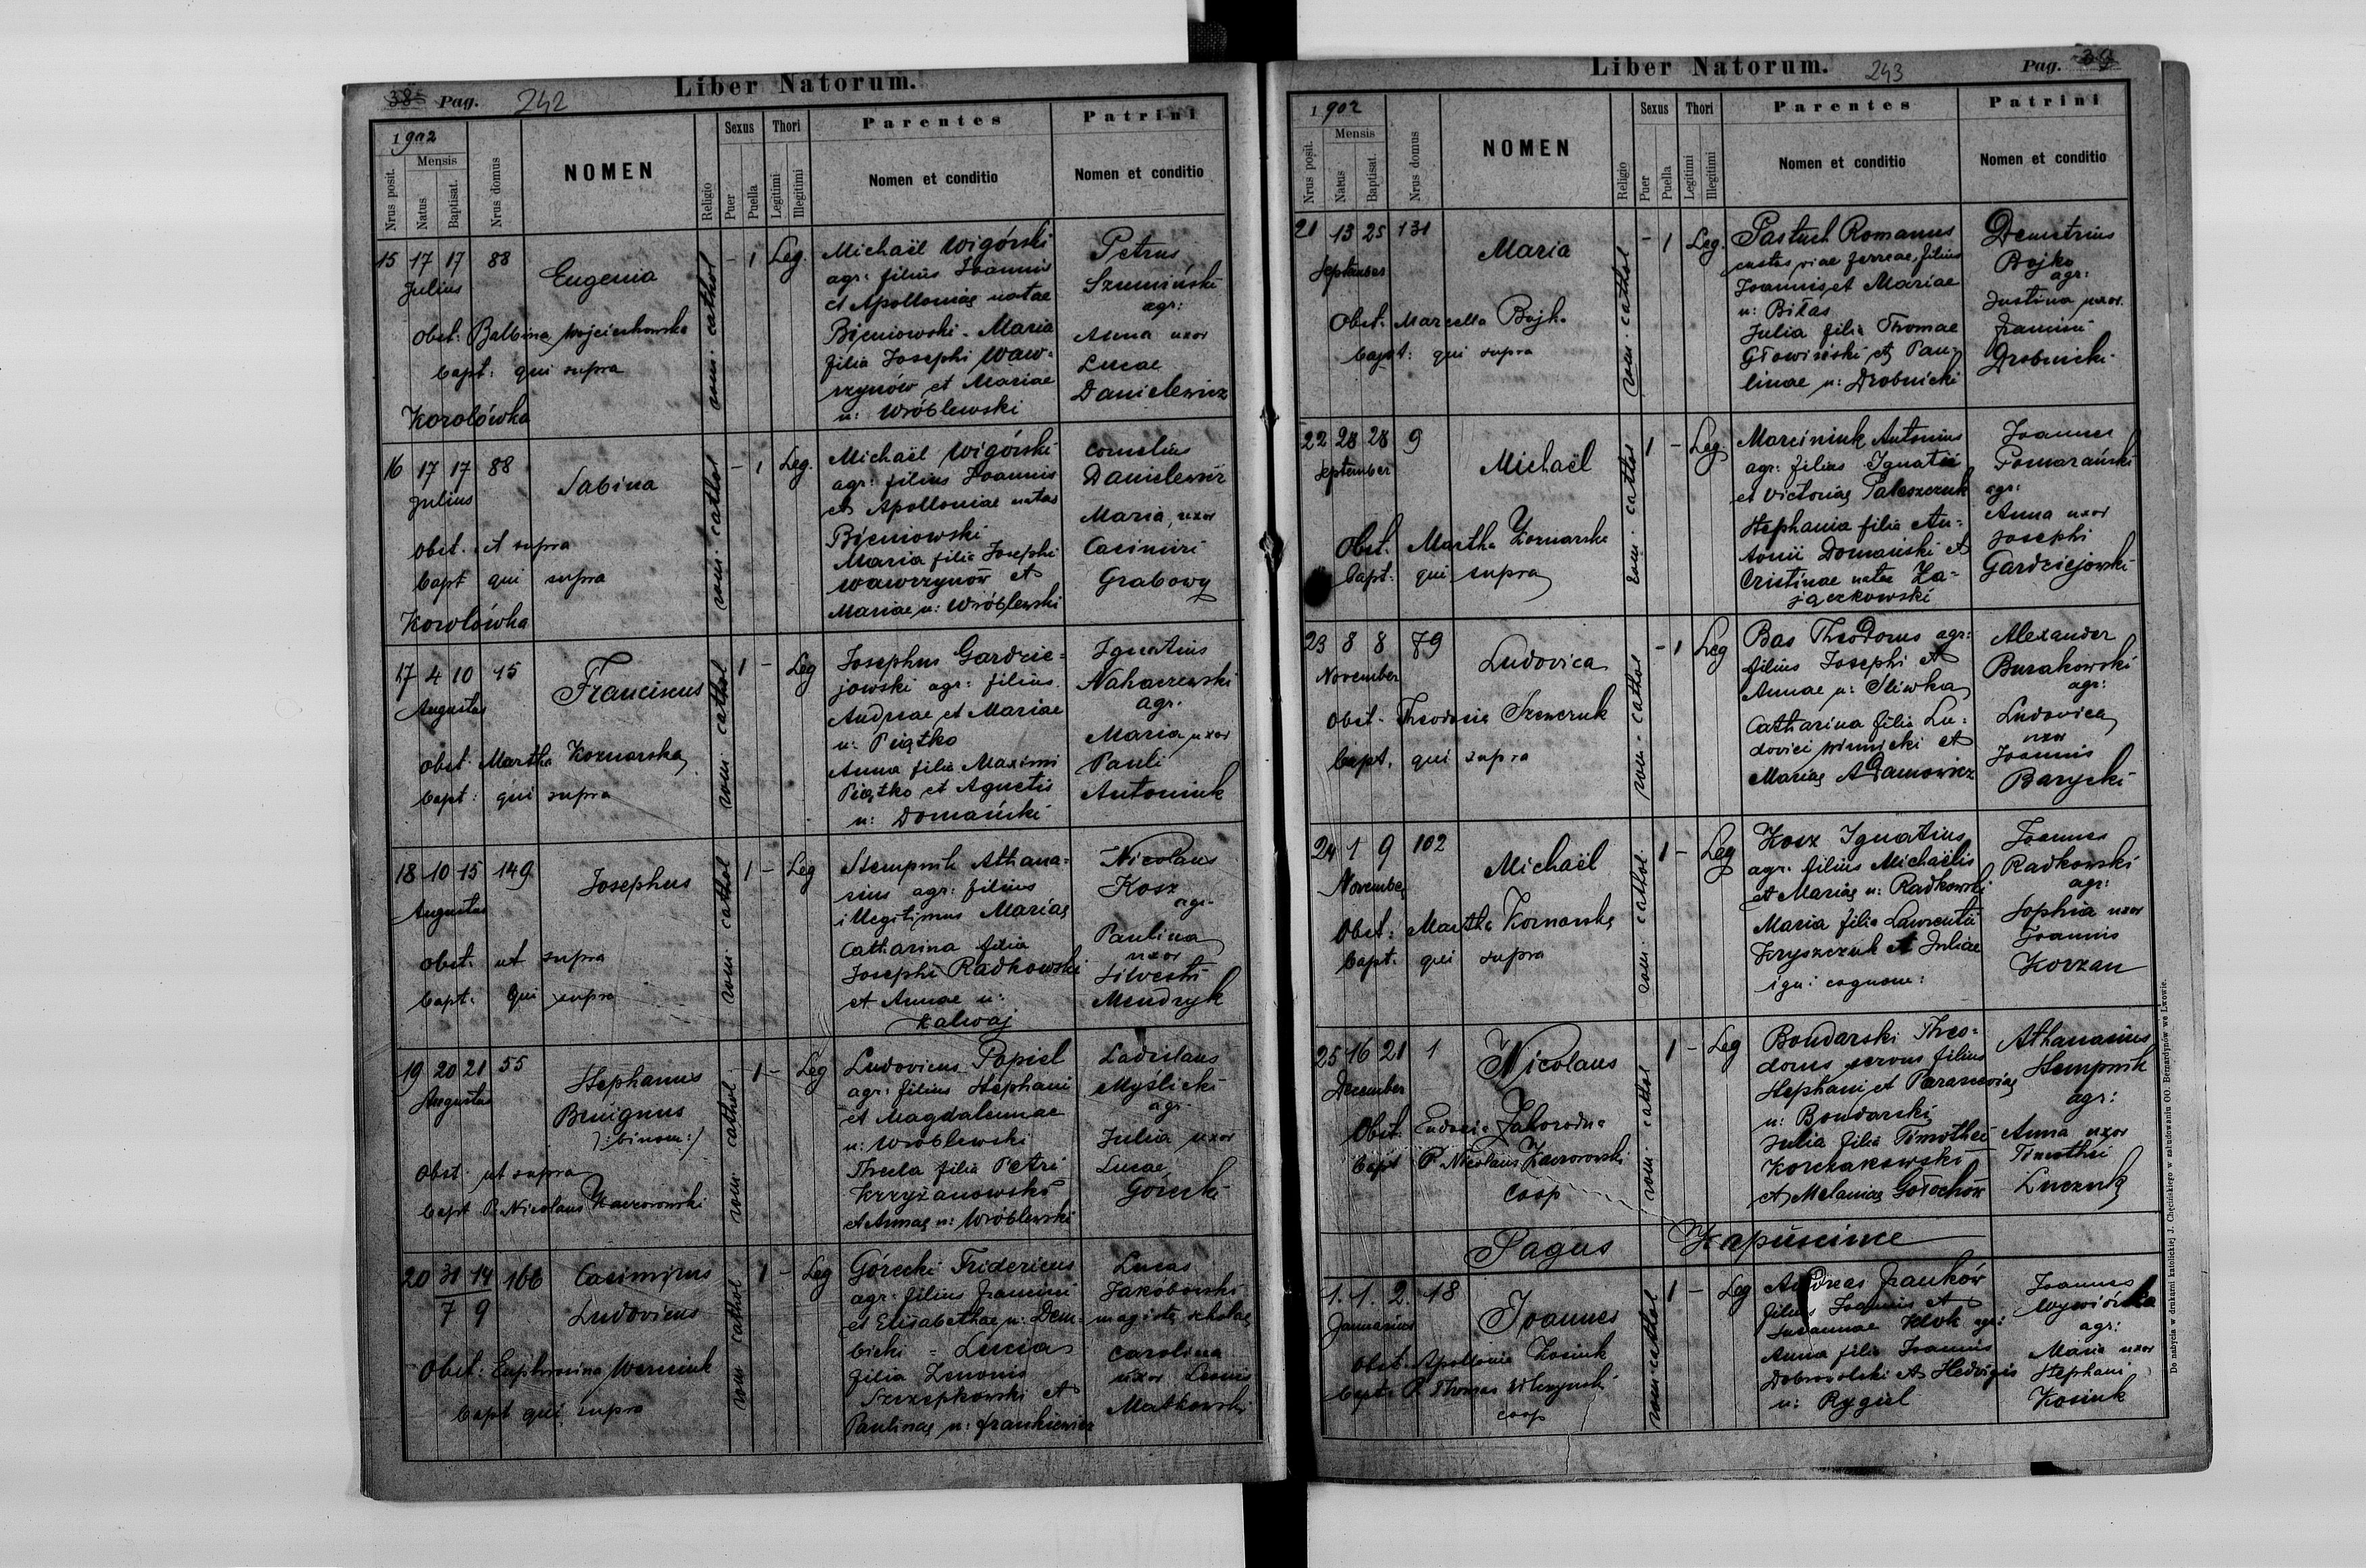 38 Pag. 242 Liber Natorum.
1902
Mensis
Nrus posit.
Natus
Baptisat.
Nrus domus
NOMEN
Religio
Sexus
Puer
Puella
Thori
Legitimi
Illegitimi
Parentes
Nomen et conditio
Patrini
Nomen et conditio
15 17 17 88
Julius
Eugenia
Obst: Balbina Wojciechowska
bapt: qui supra
Korolówka
rom: cathol
- 1 Leg.
Michaël Wigórski
agr: filius Joannis
et Apolloniae natae
Bieniowski - Maria
filia Josephi Waw-
rzynów et Mariae
n: Wróblewski
Petrus
Szumiński
agr:
Anna uxor
Lucae
Danielewicz
16 17 17 88
Julius
Sabina
Obst. ut supra
bapt qui supra
Korolówka
rom: cathol
- 1 Leg.
Michaël Wigórski
agr: filius Joannis
et Apolloniae natae
Bieniowski
Maria filia Josephi
Wawrzynów et
Mariae n: Wróblewski
Cornelius
Danielewicz
Maria, uxor
Casimiri
Grabowy
17 4 10 45
Augustus
Franciscus
Obst: Martha Koznarska
bapt: qui supra
rom: cathol
1 - Leg
Josephus Gardzie-
jowski agr: filius
Andreae et Mariae
n: Piątko
Anna filia Maximi
Piątko et Agnetis
n: Domański
Ignatius
Nahaczewski
agr.
Maria uxor
Pauli
Antoniuk
18 10 15 149
Augustus
Josephus
Obst. ut supra
bapt: qui supra
rom: cathol
1 - Leg
Stempnik Athana-
sius agr: filius
illegitimus Mariae
Catharina filia
Josephi Radkowski
et Annae n:
Kalwaj
Nicolaus
Kosz
agr.
Paulina
uxor
Silvestri
Mendryk
19 20 21 55
Augustus
Stephanus
Benignus
/:binom:/
Obst. ut supra
bapt P. Nicolaus Kaczorowski
rom: cathol
1 - Leg
Ludovicus Popiel
agr: filius Stephani
et Magdalenae
n: Wróblewski
Thecla filia Petri
Krzyżanowski
et Annae n: Wróblewski
Ladislaus
Myślicki
agr.
Julia uxor
Lucae
Górecki
20 31 14 166
7 9
Casimirus
Ludovicus
Obst: Euphrosina Werniuk
bapt qui supra
rom cathol
1 - Leg
Górecki Fridericus
agr: filius
et Elisabethae n: Dem-
bicki = Lucia
filia Zenonis
Szczepkowski et
Paulinae n: Frankiewicz
Lucas
Jakóbowski
magistr scholae
Carolina
uxor
Matkowski
Liber Natorum. 243 Pag. 39
1902
Mensis
Nrus posit.
Natus
Baptisat.
Nrus domus
NOMEN
Religio
Sexus
Puer
Puella
Thori
Legitimi
Illegitimi
Parentes
Nomen et conditio
Patrini
Nomen et conditio
21 13 25 131
September
Maria
Obst. Marcella Bojk.
bapt: qui supra
rom: cathol
- 1 Leg.
Pastuch Romanus
custos viae ferreae, filius
Joannis et Mariae
n: Biłas
Julia filia Thomae
Głowiński et Pau-
linae n: Drobnicki
Demetrius
Bojko
agr:
Justina uxor
Drobnicki
22 28 28 9
September
Michaël
Obst. Martha Koznarska
bapt: qui supra
rom: cathol
1 - Leg
Marciniuk Antonius
agr: filius Ignatii
et Victoriae
Stephania filia An-
tonii Domański et
Cristinae natae Za-
jączkowski
Joannes
Pomarański
agr:
Anna uxor
Josephi
Gardziejowski
23 8 8 79
November
Ludovica
Obst. Theodosia
bapt. qui supra
rom. cathol
- 1 Leg
Bas Theodorus agr:
filius Josephi et
Annae n: Śliwka
Catharina filia Lu-
dovici Winnicki et
Mariae Adamowicz
Alexander
Burakowski
agr:
Ludovica
uxor
Joannis
Barycki
24 1 9 102
November
Michaël
Obst: Martha Koznarska
bapt. qui supra
rom: cathol.
1 - Leg
Kosz Ignatius
agr. filius Michaëlis
et Mariae n: Radkowski
Maria filia Laurentii
Kryszczuk et Juliae
ign: cognom:
Joannes
Radkowski
agr:
Sophia uxor
Joannis
Korzan
25 16 21 1
December
Nicolaus
Obst. Eudocia Zahorodna
bapt P. Nicolaus Kaczorowski
coop
rom: cathol
1 - Leg
Bondarski Theo-
dorus servus filius
Stephani et Parasceviae
n: Bondarski
Julia filia Timothei
Korchakowski
et Melaniae Gołochów
Athanasius
Stempnik
agr:
Anna uxor
Timothei
Luczuk
Pagus Kapuścińce
1. 1. 2. 18
Januarius
Joannes
Obst. Apollonia Kosiuk
bapt. P. Thomas
coop
rom: cathol
1 - Leg
Andreas Franków
filius Joannis et
Susannae agr:
Anna filia Joannis
Dobrowolski et Hedvigis
n: Rygiel
Joannes
agr:
Maria uxor
Stephani
Kosiuk
Do nabycia w drukarni katolickiej J. Chęcińskiego w zabudowaniu OO. Bernardynów we Lwowie.